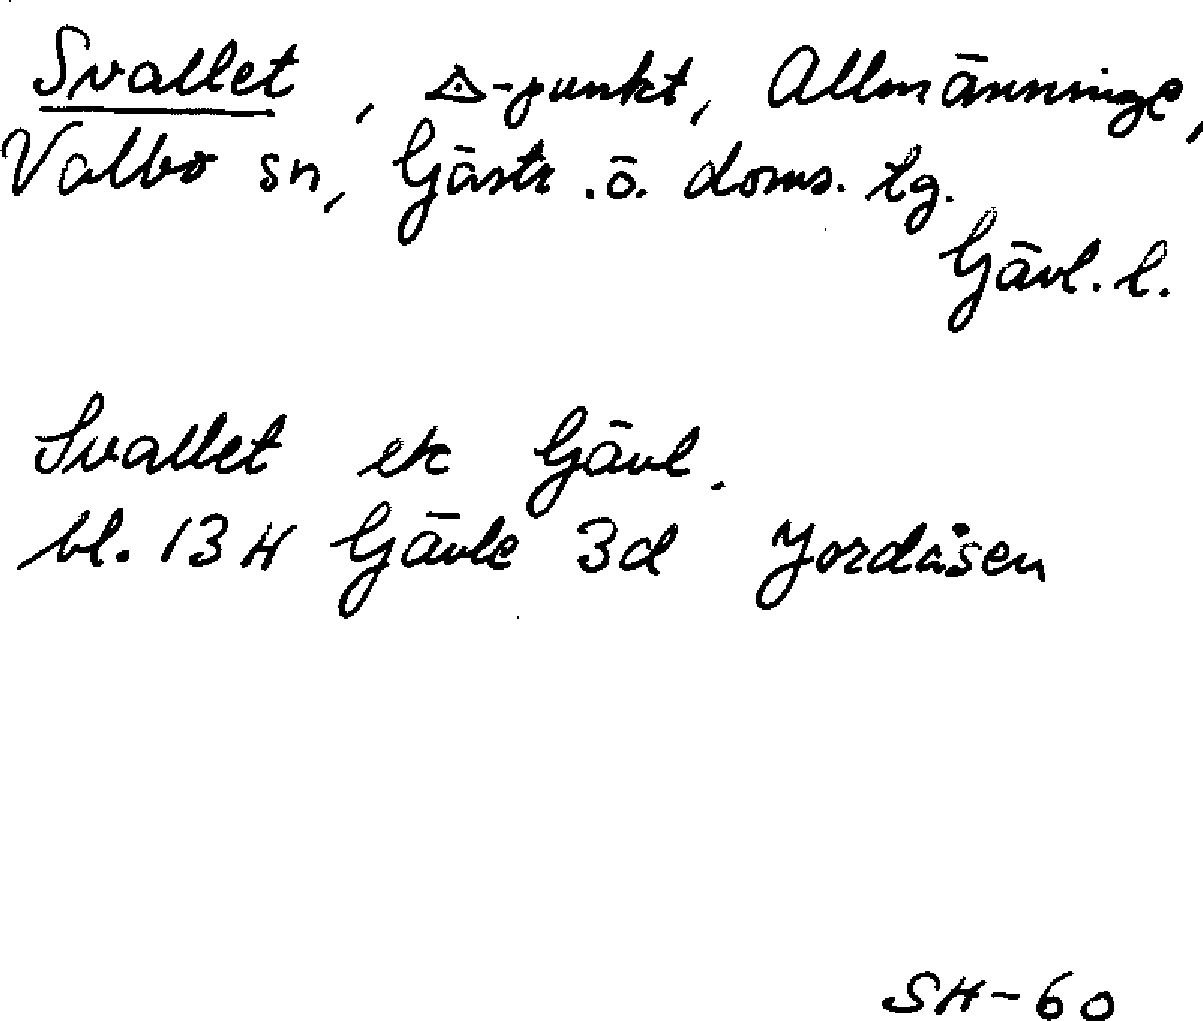 Svallet, △-punkt, Allmänninge,
Valbo sn, Gästr. ö. doms. lg.
Gävl. l.
Svallet ek Gävl.
bl. 13 H Gävle 3d Jordåsen
SH-60